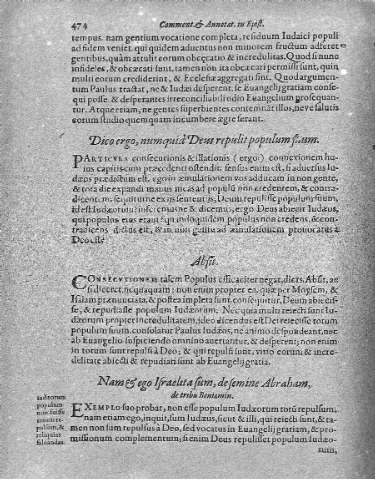 474 Comment. & Annotat. in Epist.
tempus. nam gentium vocatione completa, residuum Iudaici populi
ad fidem veniet. qui quidem aduentus non minorem fructum adferet
gentibus, quàm attulit eorum obcæcatio & incredulitas. Quod si nunc
infideles, & obcæcati sunt, tamen non ita obcæcari permissi sunt, quin
multi eorum crediderint, & Ecclesiæ aggregati sint. Quod argumen-
tum Paulus tractat, ne & Iudæi desperent, se Euangelij gratiam conse-
qui posse, & desperantes irreconciliabili odio Euangelium prosequan-
tur. Atque rursum, ne gentes superbientes contemnāt illos, neve salutis
eorum studio quem incumbere ægre ferant.
Dico ergo, nunquid Deus repulit populum suum.
PARTICVLA consecutionis & illationis (ergo) connexionem hu-
ius capitis cum præcedenti ostendit: sensus enim est, si aduersus Iu-
dæos prædictum est, ego in æmulationem
& tota die expandi manus meas ad populū non credentem, & contra-
dicentem, Deum repulisse populum suum,
id est Iudæorum & dicemus, ergo Deus abiecit Iudæos,
populus non credens, & con-
tradicens dictus est, & in æmulationem provocatus à
Deo est?
Absit.
CONSECVTIONEM talem Populus efficaciter negat, dicens Absit, ac
si diceret, nequaquam: non enim propter ea, quæ per Moysem, &
Isaiam prænunciata, & postea impleta sunt, consequitur, Deum abiecis-
se, & repulisse populum Iudæorum. Nec quia multi reiecti sunt Iu-
dæorum propter incredulitatem, ideo dicendus est Deus reiecisse totum
populum suum. consolatur Paulus Iudæos, ne animo despondeant, nec
ab Euangelio suspiciendo omnino avertantur, & desperent; non enim
in totum sunt repulsi à Deo; & qui repulsi sunt, vitio eorum & incre-
delitate abiecti & repudiati sunt ab Euangelij gratia.
Nam & ego Israelita sum, de semine Abraham,
de tribu Beniamin.
EXEMPLO suo probat, non esse populum Iudæorum totū repulsum.
nam etiam ego, inquit, sum Iudæus, sicut & illi, qui reiecti sunt, & ta-
men non sum repulsus à Deo, sed vocatus in Euangelij gratiam, & pro-
missionum complementum; si enim Deus repulisset populum Iudæo-
rum,
Iudæorum
populum
non fuisse
repul-
sum, &
reliquias
saluandas.